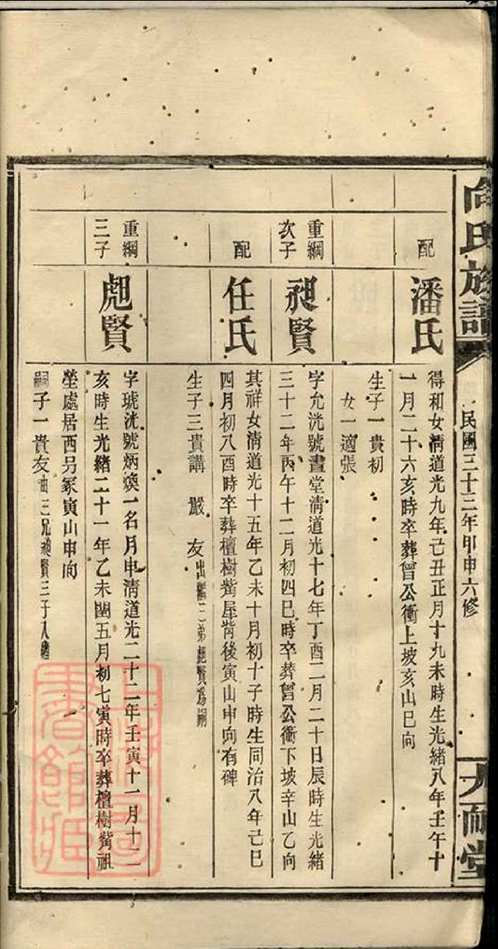 氏族譜
民國三十三年甲申六修
大耐堂
配
潘氏
得和女清道光九年己丑正月十九未時生光緒八年壬午十
一月二十六亥時卒葬曾公衝上坡亥山巳向
生子一貴初
女一適張
重綱
次子
昶賢
字允洸號晝堂清道光十七年丁酉二月二十日辰時生光緒
三十二年丙午十二月初四巳時卒葬曾公衝下坡辛山乙向
配
任氏
其祥女清道光十五年乙未十月初十子時生同治八年己巳
四月初八酉時卒葬檀樹觜屋背後寅山申向有碑
生子三貴講 嚴 友
重綱
三子
彪賢
字琥洸號炳煥一名月申清道光二十二年壬寅十一月十二
亥時生光緒二十一年乙未閏五月初七寅時卒葬檀樹觜祖
塋處居西另冢寅山申向
嗣子一貴友